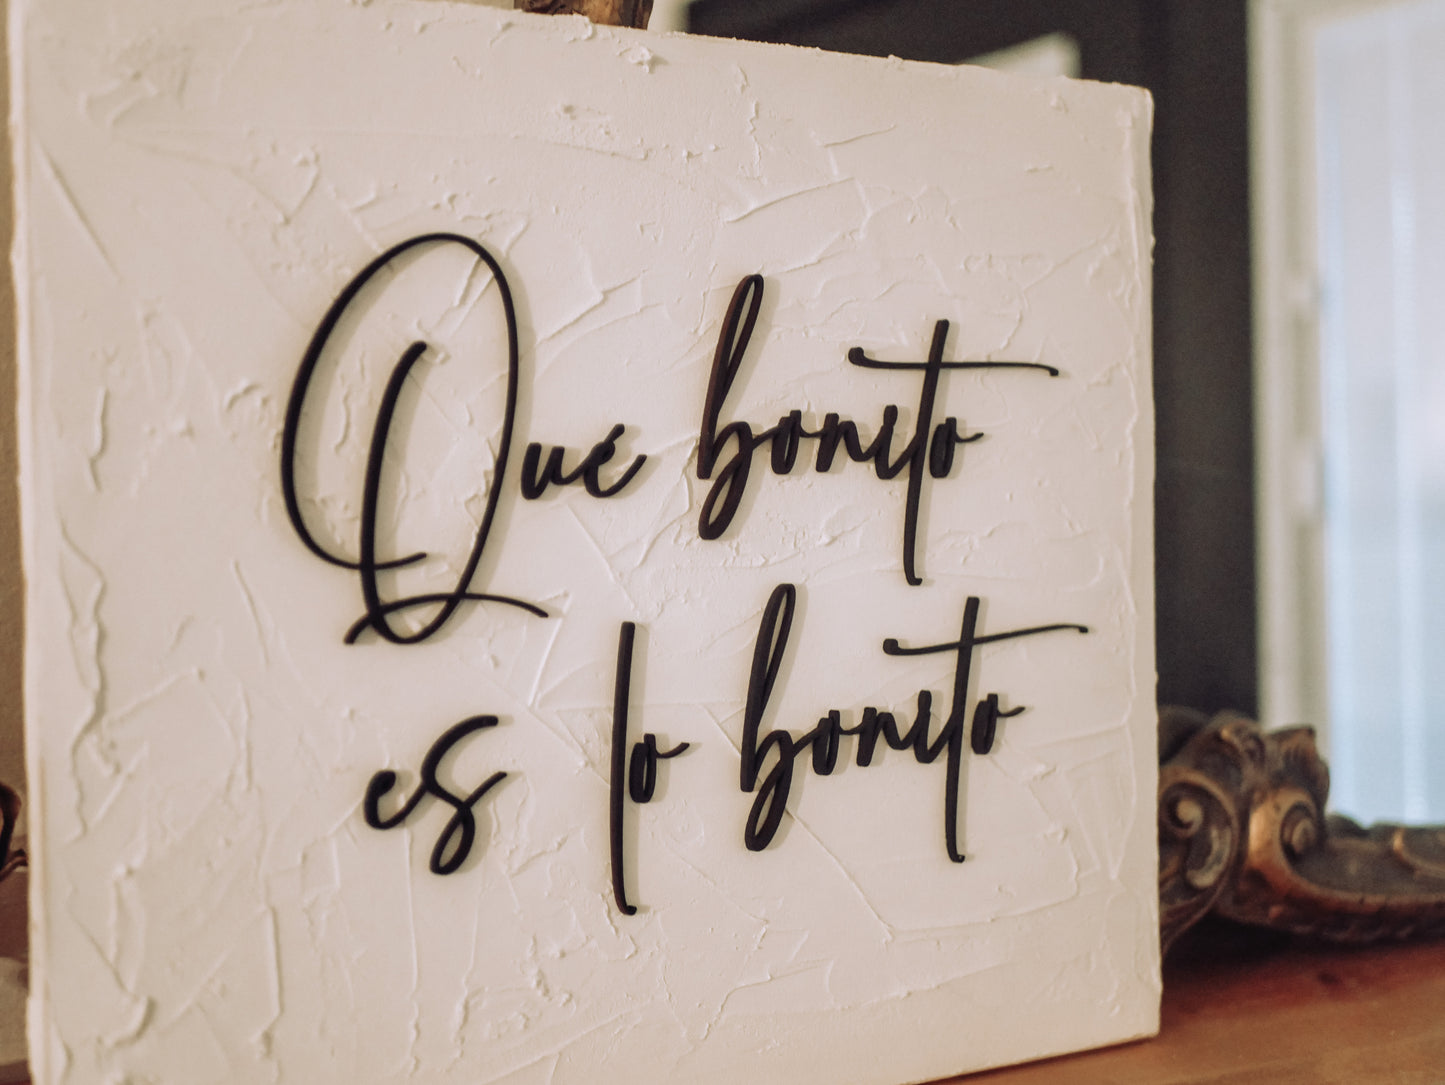 Qué bonito
es lo bonito